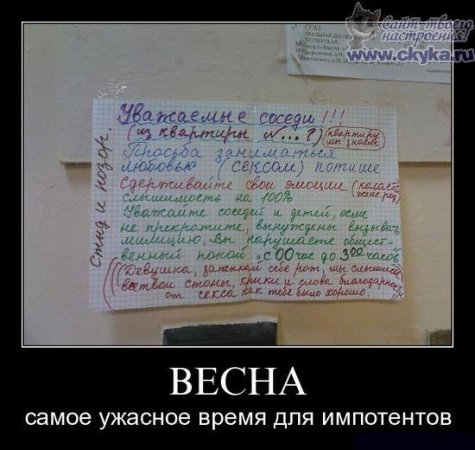 Сайт твоего
настроения!
www.ckyka.ru
Уважаемые соседи!!!
(из квартиры №...?) (квартиру мы знаем)
Просьба заниматься
любовью (сексом) потише
Сдерживайте свои эмоции (касается жен. род)
слышимость на 100%
Уважайте соседей и детей, если
не прекратите, вынуждены вызывать
милицию, Вы нарушаете общест-
венный покой с 00 час до 3 00 часов
Девушка, заткни себе рот, мы слышим
все твои стоны, крики и слова благодарности
от секса как тебе было хорошо.
Стыд и позор.
ВЕСНА
самое ужасное время для импотентов